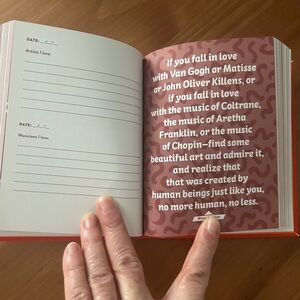 DATE:
Artists I love:
DATE:
Musicians I love:
If you fall in love
with Van Gogh or Matisse
or John Oliver Killens, or
if you fall in love
with the music of Coltrane,
the music of Aretha
Franklin, or the music
of Chopin—find some
beautiful art and admire it,
and realize that
that was created by
human beings just like you,
no more human, no less.